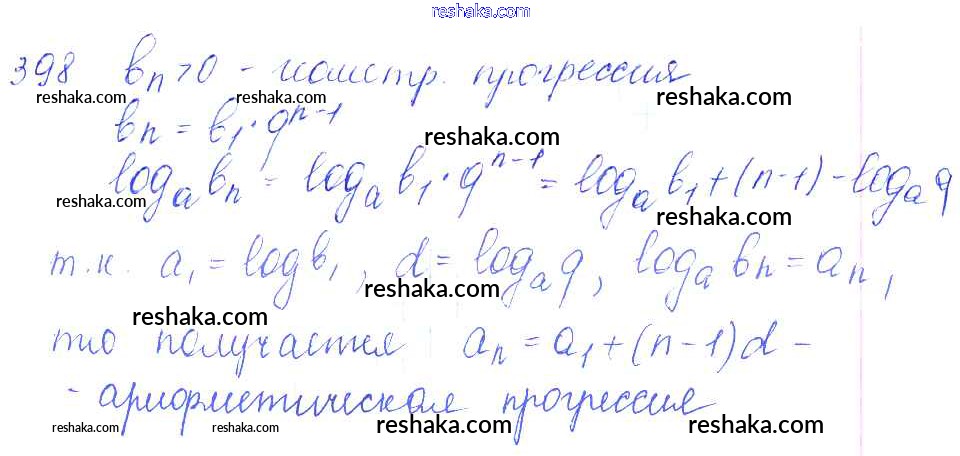 reshaka.com
398 bₙ>0 - геометр. прогрессия
reshaka.com reshaka.com reshaka.com
bₙ = b₁·qⁿ⁻¹
reshaka.com
logₐbₙ = logₐb₁·qⁿ⁻¹ = logₐb₁+(n-1)-logₐq
reshaka.com reshaka.com
т.к. a₁ = logb₁, d = logₐq, logₐbₙ = aₙ,
reshaka.com reshaka.com
reshaka.com
то получается aₙ = a₁+(n-1)d -
- арифметическая прогрессия
reshaka.com reshaka.com reshaka.com reshaka.com